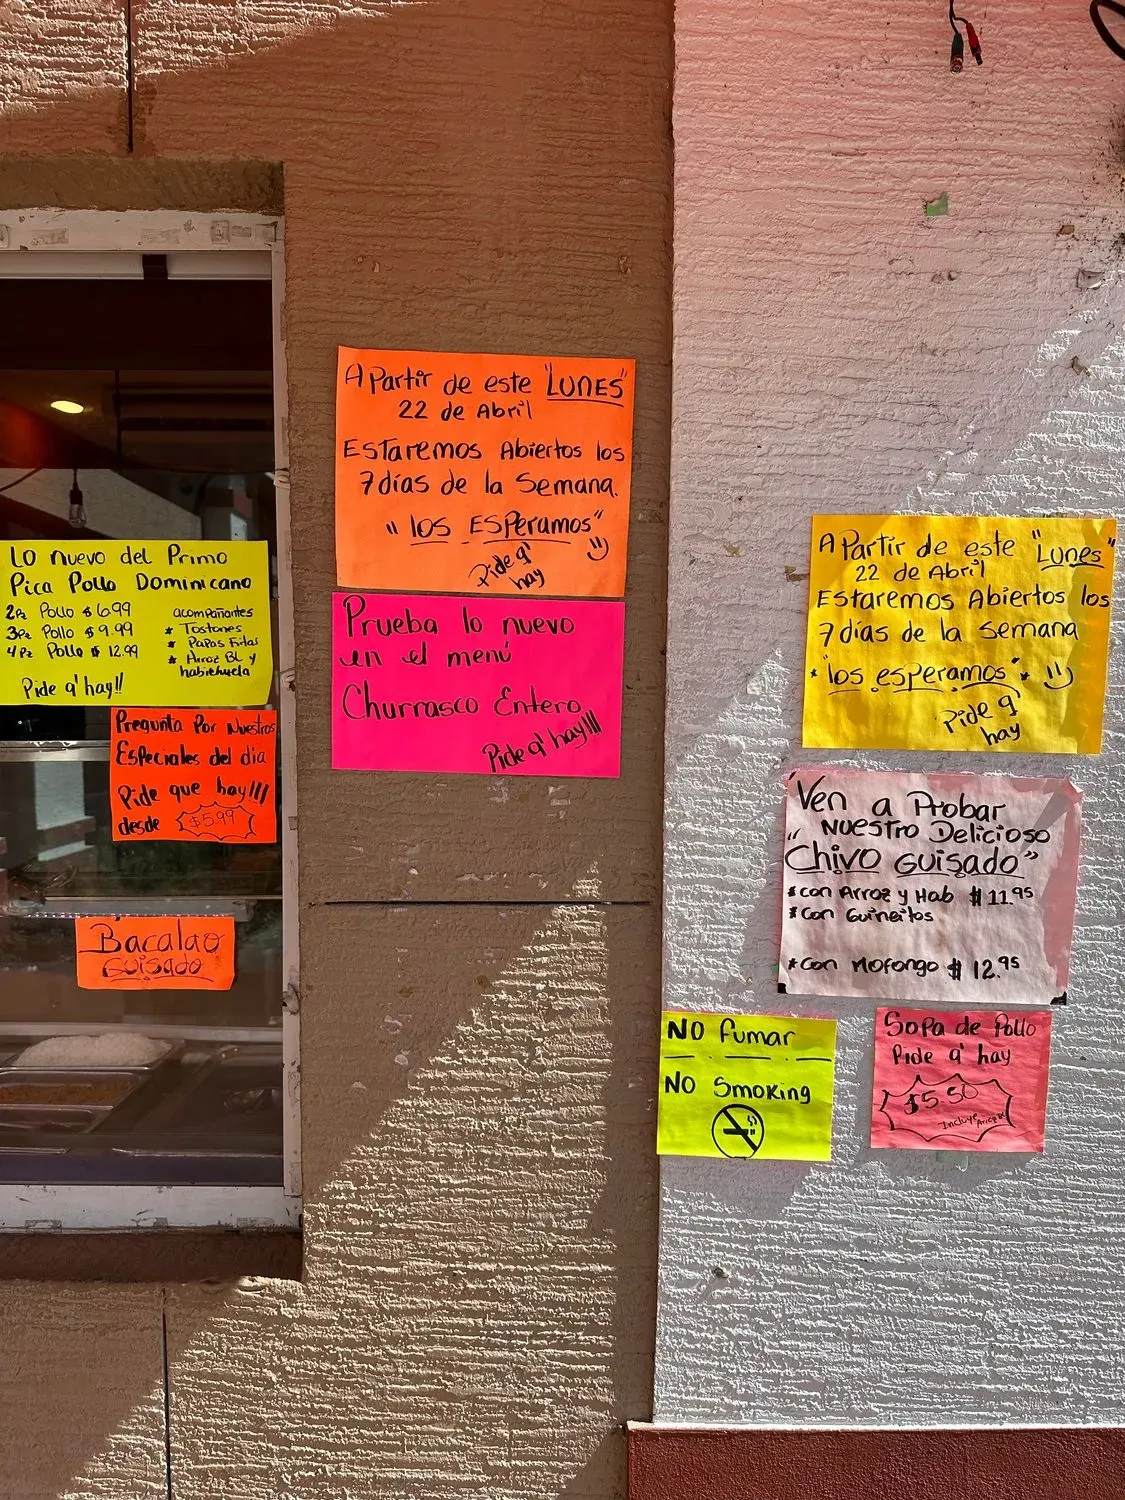 Lo nuevo del Primo
Pica Pollo Dominicano
2Pz Pollo $6.99
3Pz Pollo $9.99
4Pz Pollo $12.99
acompañantes
* Tostones
* Papas Fritas
* Arroz BL y
habichuela
Pide q' hay!!
Pregunta Por Nuestros
Especiales del día
Pide que hay!!!
desde $5.99
Bacalao
Guisado
A Partir de este "LUNES"
22 de Abril
Estaremos Abiertos los
7 días de la Semana.
"los Esperamos"
Pide q'
hay
Prueba lo nuevo
en el menú
Churrasco Entero
Pide q' hay!!!!
A Partir de este "Lunes"
22 de Abril
Estaremos Abiertos los
7 días de la Semana
"los esperamos"
Pide q'
hay
Ven a Probar
Nuestro Delicioso
"Chivo Guisado"
* con Arroz y Hab $11.95
* con Guineitos
* con Mofongo $12.95
NO Fumar
NO Smoking
Sopa de Pollo
Pide q' hay
$5.50
Incluye Arroz